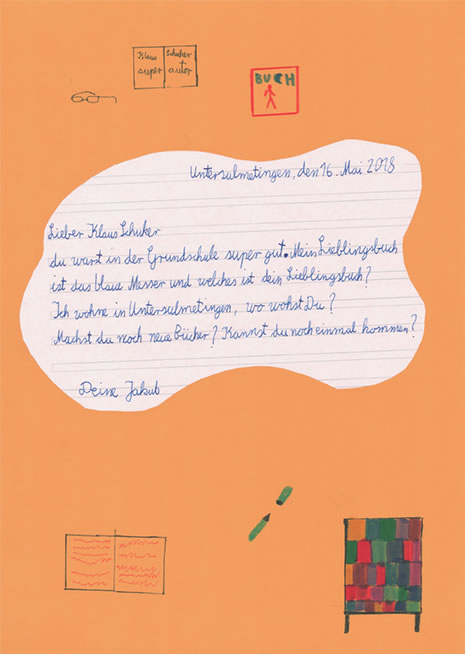 Klaus Schuker
super autor
BUCH
Untersulmetingen, den 16. Mai 2018
Lieber Klaus Schuker
du warst in der Grundschule super gut. Mein Lieblingsbuch
ist das blaue Messer und welches ist dein Lieblingsbuch?
Ich wohne in Untersulmetingen, wo wohst Du?
Machst du noch neue Bücher? Kannst du noch einmal kommen?
Deine Jakub